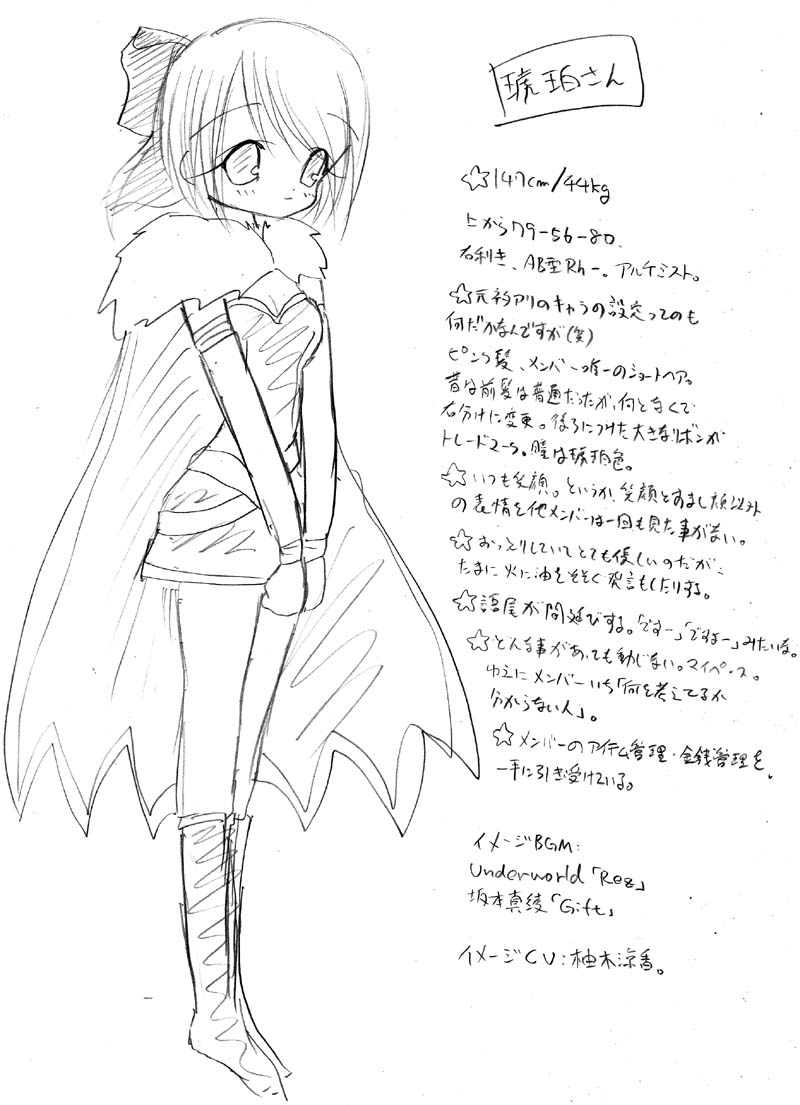 琥珀さん
☆147cm/44kg
上から79-56-80.
右利き、AB型Rh-。アルケミスト。
☆元ネタアリのキャラの設定ってのも
何だかなんですが(笑)
ピンク髪、メンバー唯一のショートヘア。
昔は前髪は普通だったが、何となくで
右分けに変更。後ろにつけた大きなリボンが
トレードマーク。瞳は琥珀色。
☆いつも笑顔。というか、笑顔とすまし顔以外
の表情を他メンバーは一回も見た事がない。
☆おっとりしていてとても優しいのだが、
たまに火に油をそそぐ発言もしたりする。
☆語尾が間延びする。「ですー」「ですよー」みたいな。
☆どんな事があっても動じない。マイペース。
ゆえにメンバーいち「何を考えてるか
分からない人」。
☆メンバーのアイテム管理・金銭管理を
一手に引き受けている。
イメージBGM:
Underworld「Rez」
坂本真綾「Gift」
イメージCV:柚木涼香。